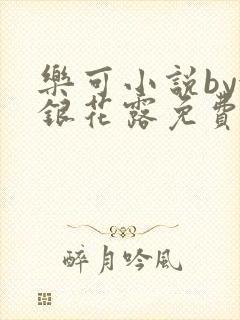 樂可小說by
銀花露免費
醉月吟風